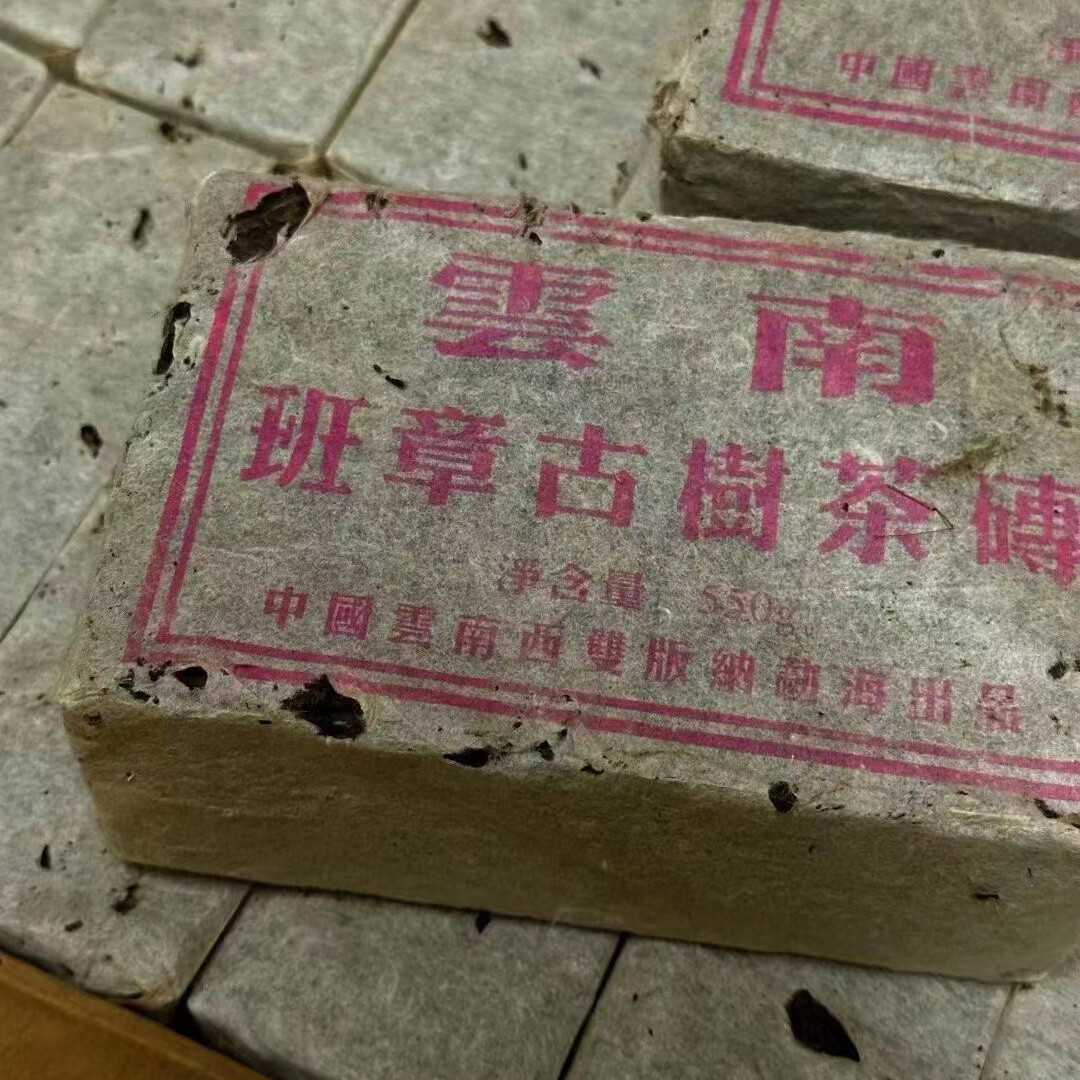 雲南
班章古樹茶磚
淨含量 550g
中國雲南西雙版納勐海出品
淨
中國雲南西